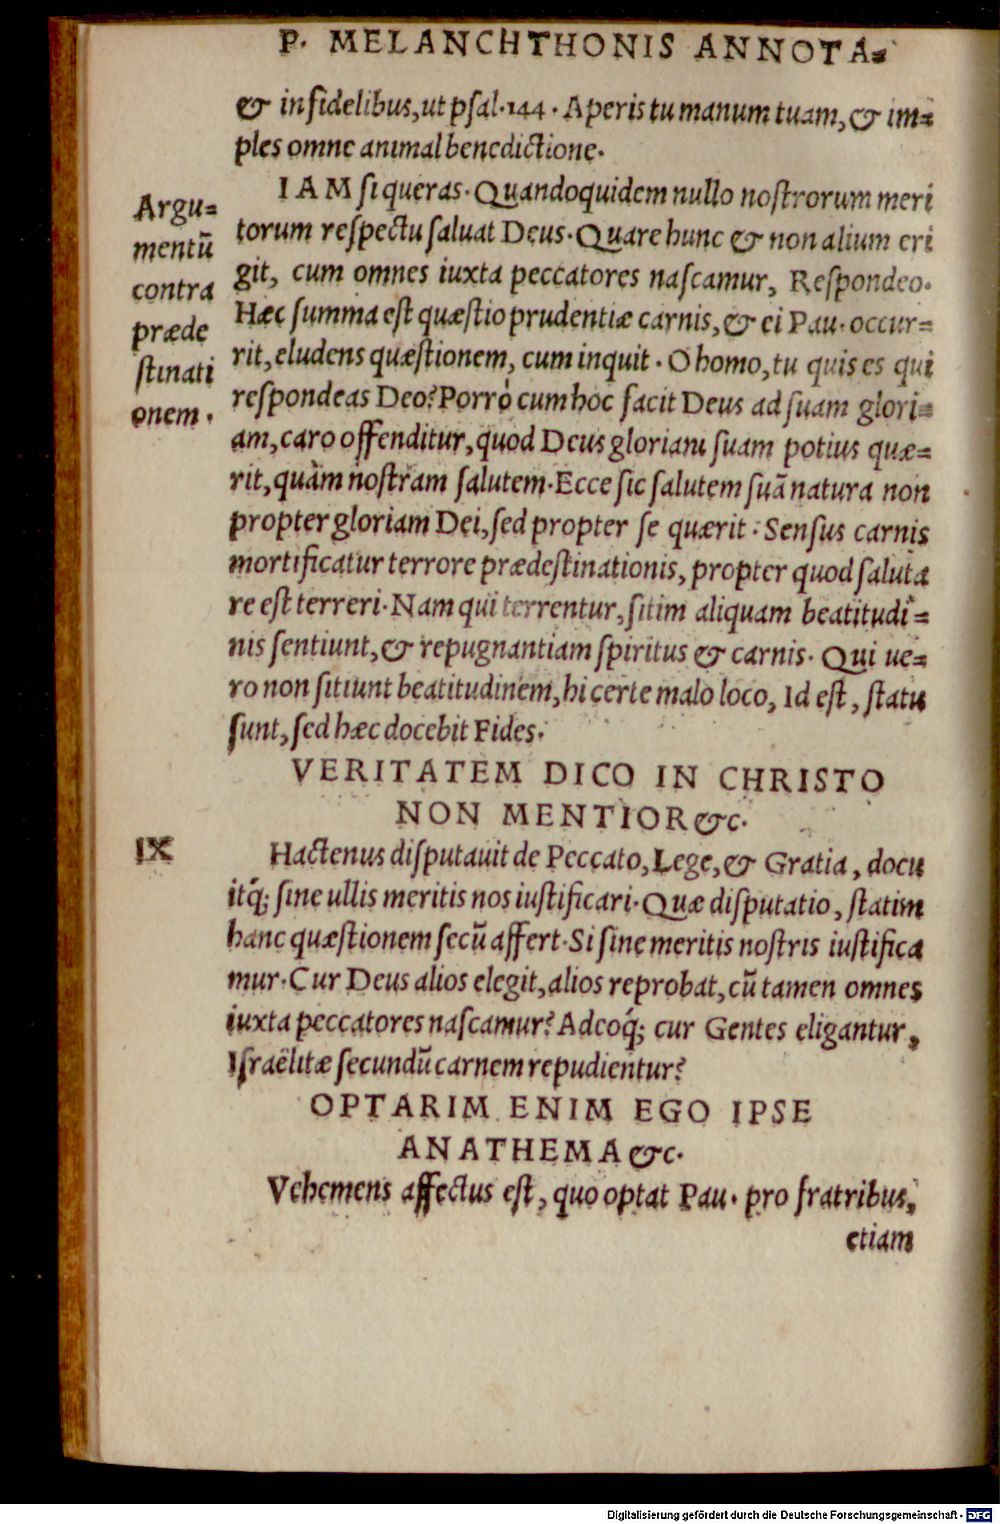 P. MELANCHTHONIS ANNOTA=
& infidelibus, ut psal. 144. Aperis tu manum tuam, & im=
ples omne animal benedictione.
IAM si queras. Quandoquidem nullo nostrorum meri
torum respectu saluat Deus. Quare hunc & non alium eri
git, cum omnes iuxta peccatores nascamur, Respondeo.
Hæc summa est quæstio prudentiæ carnis, & ei Pau. occur=
rit, eludens quæstionem, cum inquit. O homo, tu quis es qui
respondeas Deo? Porrò cum hoc facit Deus ad suam glori=
am, caro offenditur, quod Deus gloriam suam potius quæ=
rit, quàm nostram salutem. Ecce sic salutem suã natura non
propter gloriam Dei, sed propter se quærit: Sensus carnis
mortificatur terrore prædestinationis, propter quod saluta
re est terreri. Nam qui terrentur, sitim aliquam beatitudi=
nis sentiunt, & repugnantiam spiritus & carnis. Qui ue=
ro non sitiunt beatitudinem, hi certe malo loco, Id est, statu
sunt, sed hæc docebit Fides.
Argu=
mentũ
contra
præde
stinati
onem.
VERITATEM DICO IN CHRISTO
NON MENTIOR &c.
IX
Hactenus disputauit de Peccato, Lege, & Gratia, docu
itq́; sine ullis meritis nos iustificari. Quæ disputatio, statim
hanc quæstionem secũ affert. Si sine meritis nostris iustifica
mur. Cur Deus alios elegit, alios reprobat, cũ tamen omnes
iuxta peccatores nascamur? Adeoq́; cur Gentes eligantur,
Israëlitæ secundũ carnem repudientur?
OPTARIM ENIM EGO IPSE
ANATHEMA &c.
Vehemens affectus est, quo optat Pau. pro fratribus,
etiam
Digitalisierung gefördert durch die Deutsche Forschungsgemeinschaft - DFG